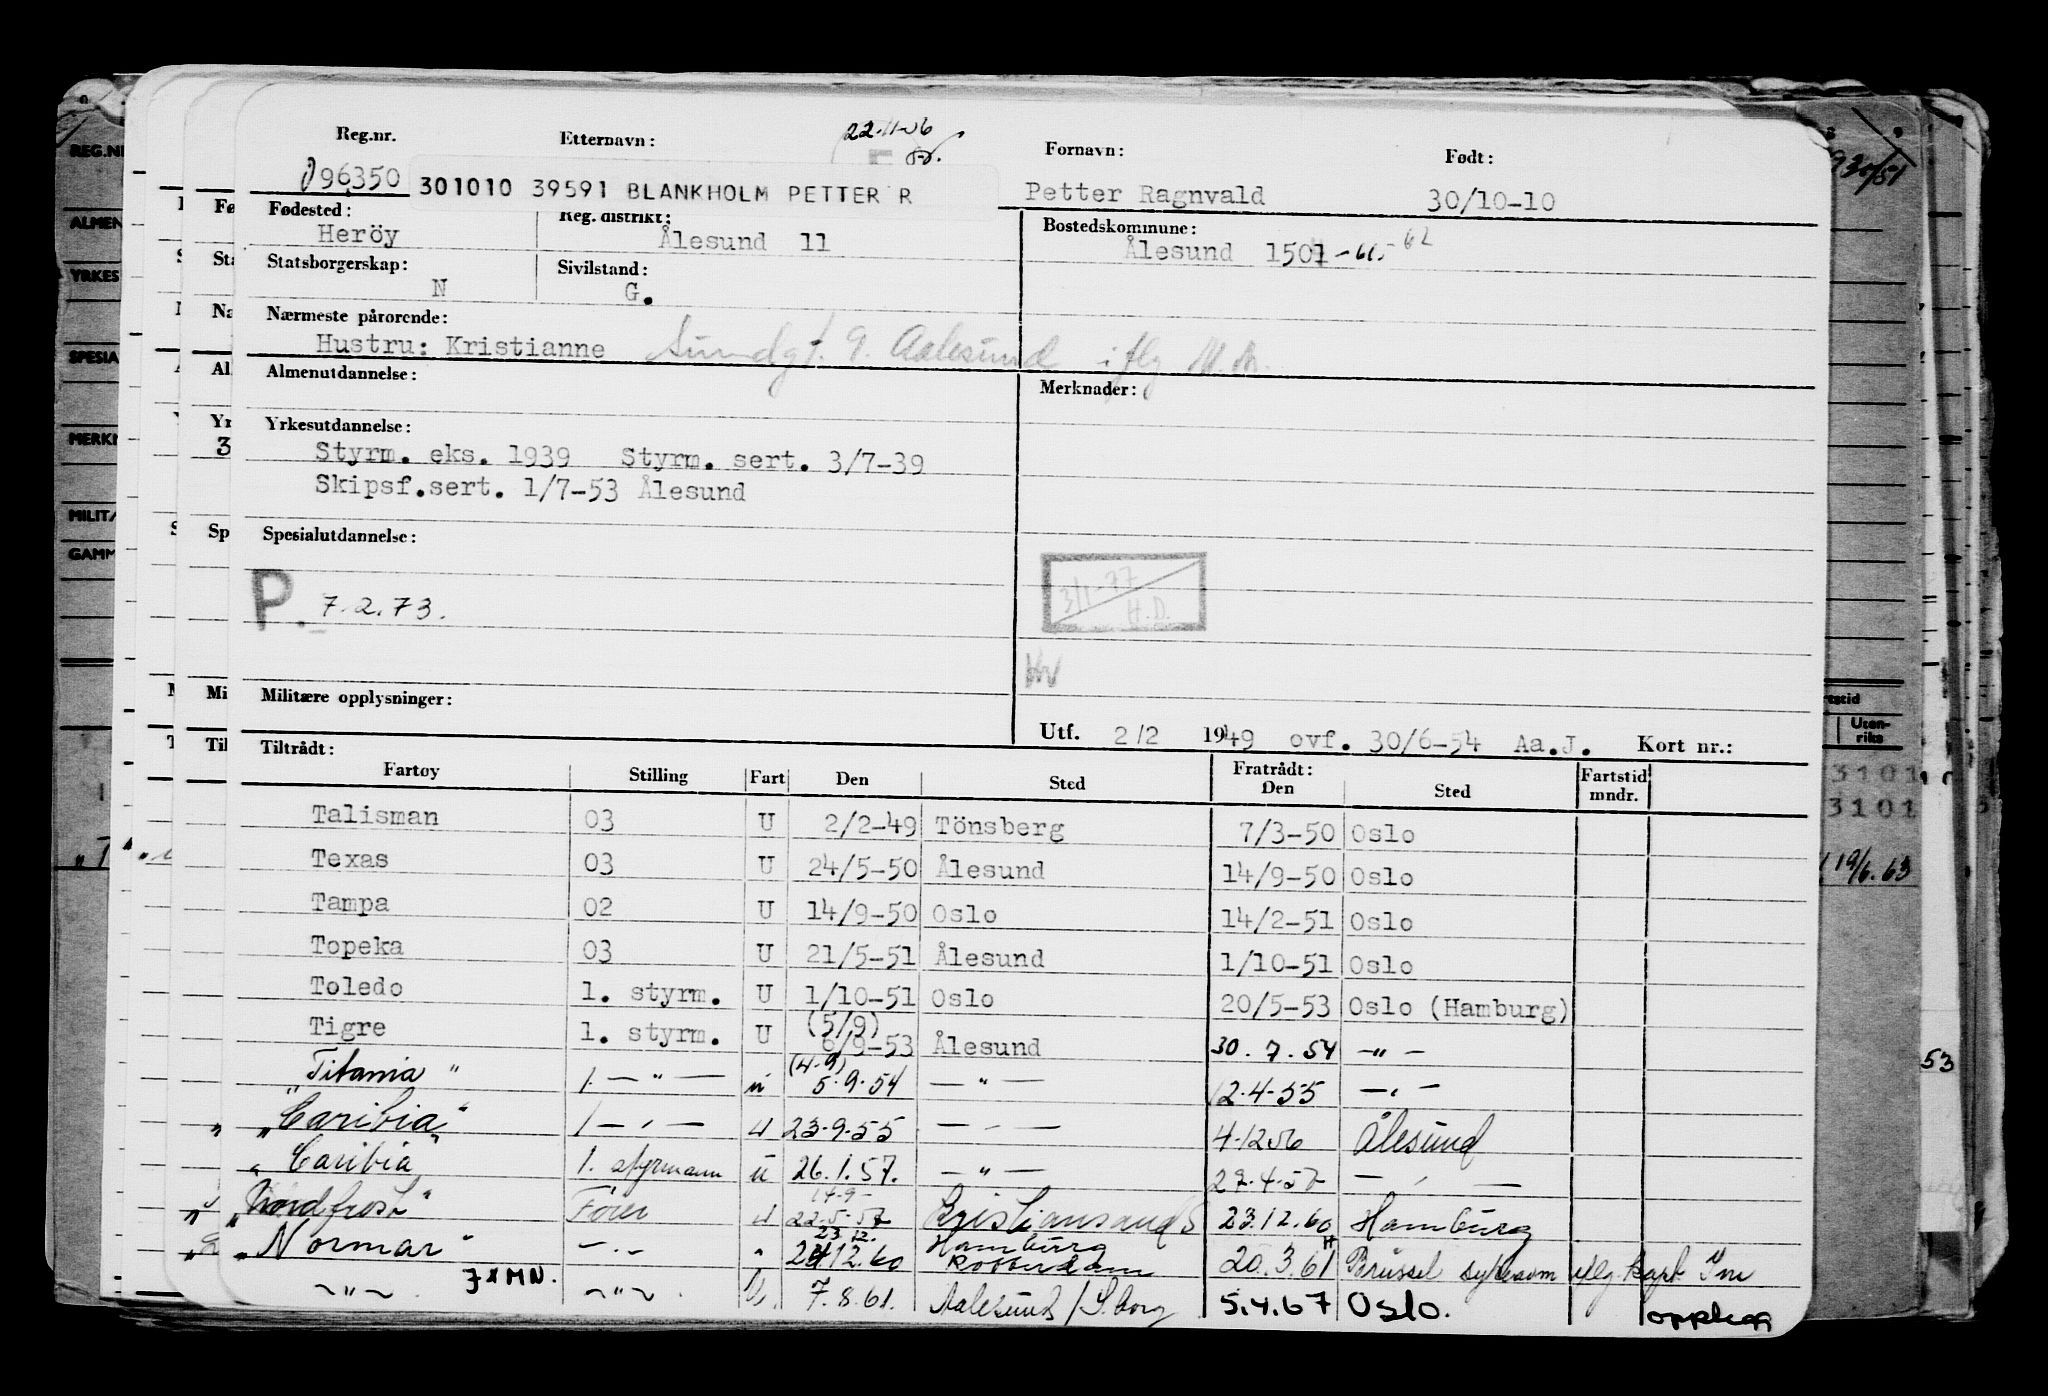 Reg.nr. Etternavn: 22-11-56 Fornavn: Født:
096350 301010 39591 BLANKHOLM PETTER R Petter Ragnvald 30/10-10
Fødested: Reg. distrikt: Bostedskommune:
Heröy Ålesund 11 Ålesund 1501 - 62
Statsborgerskap: Sivilstand:
N G.
Nærmeste pårørende:
Hustru: Kristianne Sundgt. 9. Aalesund iflg M.M.
Almenutdannelse: Merknader:
Yrkesutdannelse:
Styrm. eks. 1939 Styrm. sert. 3/7-39
Skipsf.sert. 1/7-53 Ålesund
Spesialutdannelse:
P. 7.2.73.
3/1-77
H.D.
Militære opplysninger:
Utf. 2/2 1949 ovf. 30/6-54 Aa.J. Kort nr.:
Tiltrådt: Fratrådt:
Fartøy Stilling Fart Den Sted Den Sted Fartstid mndr.
Talisman 03 U 2/2-49 Tönsberg 7/3-50 Oslo
Texas 03 U 24/5-50 Ålesund 14/9-50 Oslo
Tampa 02 U 14/9-50 Oslo 14/2-51 Oslo
Topeka 03 U 21/5-51 Ålesund 1/10-51 Oslo
Toledo 1. styrm. U 1/10-51 Oslo 20/5-53 Oslo (Hamburg)
Tigre 1. styrm. U (5/9) 6/9-53 Ålesund 30.7.54 -"-
"Titania" 1. -"- u (4-9) 5.9.54 -"- 12.4-55 -"-
"Caribia" 1 -"- U 23.9.55 -"- 4-12 56 Ålesund
"Caribia" 1. styrmann u 26.1.57. -"- 27.4.57 -"-
"Nordfrost" Fører U 22.5.57 Kristiansand S 23.12.60 Hamburg
"Normar" -"- " 23.12. 24 12.60 Hamburg Rotterdam 20.3.61 Brüssel sykdom iflg. kapt.
-"- 7 x MN. -"- U. 7.8.61. Aalesund / S.borg 5.4.67 Oslo. opplegg
REG.NR
ALMEN
YRKES
SPESIA
MERKN
MILIT
GAMM
Uten-
riks
3101
3101
19/6.63
53